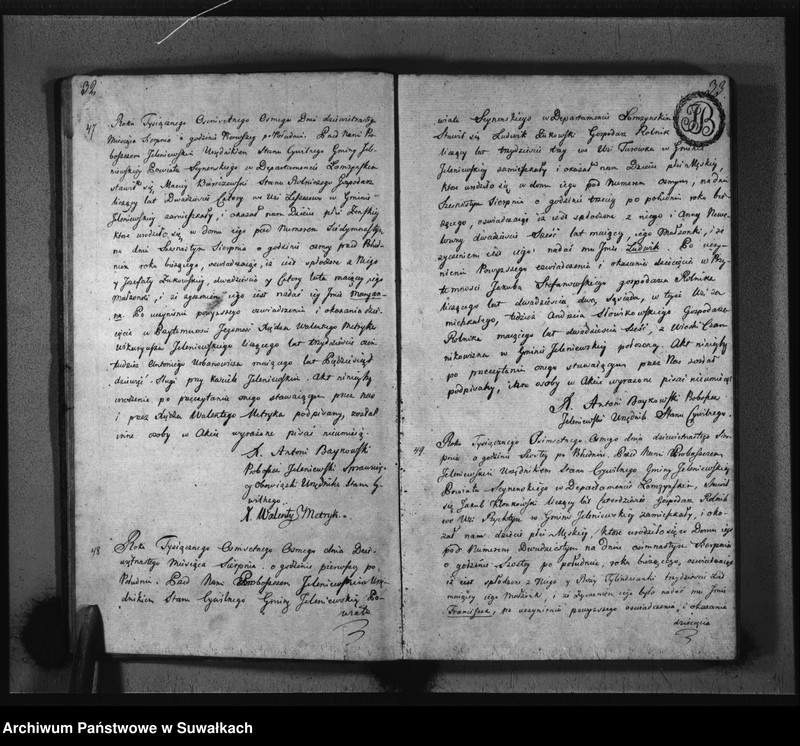 32
47
Roku Tysiącznego Osmsetnego Osmego Dnia dziewiętnastego
Miesiąca Sierpnia o godzinie Pierwszey po Południu. Przed Nami Pro-
boszczem Jeleniewskim Urzędnikiem Stanu Cywilnego Gminy Jele-
niewskiey Powiatu Seynenskiego w Departamencie Łomżyńskim
Stawił się Maciey Stanu Rolniczego Gospodarz
liczący lat Dwadzieścia Cztery we Wsi w Gminie
Jeleniewskiey zamieszkały, i okazał nam Dziecie płci Żeńskiey
które urodziło się w domu iego pod Numerem Siedymnastym
na dniu Szesnastym Sierpnia o godzinie osmey przed Połud-
niem roku bieżącego, oświadczaiąc, iż iest spłodzone z Niego
y Jozefaty Żukowskiey, dwadzieścia y Cztery lata maiącey iego
Małżonki, i że życzeniem iego iest nadać iey Jmie Maryan-
na. Po uczynieniu powyższego oświadczenia i okazania dzie-
cięcia w Przytomności Jegomości Xiędza Walentego Metryka
Wikaryusza Jeleniewskiego liczącego lat trzydzieście
tudzież Antoniego Urbanowicza maiącego lat Pięćdziesiąt
dziewięć Sługi przy Kościele Jeleniewskim. Akt ninieyszy
urodzenia po przeczytaniu onego stawaiącym przez nas
i przez Xiędza Walentego Metryka podpisany, został
inne osoby w Akcie wyrażone pisać nieumieią.
X. Antoni Baykowski
Proboszcz Jeleniewski Sprawuią-
cy Obowiązek Urzędnika Stanu Cy-
wilnego.
X. Walenty Metryk.
48
Roku Tysiącznego Osmsetnego Osmego dnia Dzie-
więtnastego Miesiąca Sierpnia o godzinie pierwszey po
Południu. Przed Nami Proboszczem Jeleniewskim Urzę-
dnikiem Stanu Cywilnego Gminy Jeleniewskiey Po-
wiatu
33
wiatu Seynenskiego w Departamencie Łomżyńskim
Stawił się Ludwik Żukowski Gospodarz Rolnik
liczący lat trzydzieście trzy we Wsi Turówka w Gminie
Jeleniewskiey zamieszkały i okazał nam Dziecie płci Męskiey,
które urodziło się w domu iego pod Numerem osmym, na dniu
Szesnastym Sierpnia o godzinie trzeciey po południu roku bie-
żącego, oświadczaiąc iż iest spłodzone z niego i Anny
dwadzieścia Sześć lat maiącey, iego Małżonki, i że
życzeniem iest iego, nadać mu Jmie Ludwik. Po uczy-
nieniu Powyższego oświadczenia i okazaniu dziecięcia w Przy-
tomności Jakuba Stefanowskiego gospodarza Rolnika
liczącego lat dwadzieścia dwa, Sąsiada, w teyże Wsi za-
mieszkałego, tudzież Andrzeia Słowikowskiego Gospodarza
Rolnika maiącego lat dwadzieścia Sześć, z Wioski Czar-
nikowizna w Gminie Jeleniewskiey położoney. Akt ninieyszy
po przeczytaniu onego stawaiącym przez Nas został
podpisany, inne osoby w Akcie wyrażone pisać nieumieią
X. Antoni Baykowski Proboszcz
Jeleniewski Urzędnik Stanu Cywilnego.
49
Roku Tysiącznego Osmsetnego Osmego dnia dziewiętnastego Sier-
pnia o godzinie Szostey po Południu. Przed Nami Proboszczem
Jeleniewskim Urzędnikiem Stanu Cywilnego Gminy Jeleniewskiey
Powiatu Seynenskiego w Departamencie Łomżyńskim, Stawił
się Jakub Klonkowski liczący lat Czterdzieście Gospodarz Rolnik
we Wsi w Gminie Jeleniewskiey zamieszkały, i oka-
zał nam dziecie płci Męskiey, które urodziło się w Domu iego
pod Numerem Dwudziestym na dniu osmnastym Sierpnia
o godzinie Szostey po południu, roku bieżącego, oświadczaiąc
iż iest spłodzone z Niego y trzydzieście dwa
maiącey iego Małżonki, i że życzeniem iego było nadać mu Jmie
Franciszek, po uczynieniu powyższego oświadczenia, i okazania
dziecięcia
Archiwum Państwowe w Suwałkach